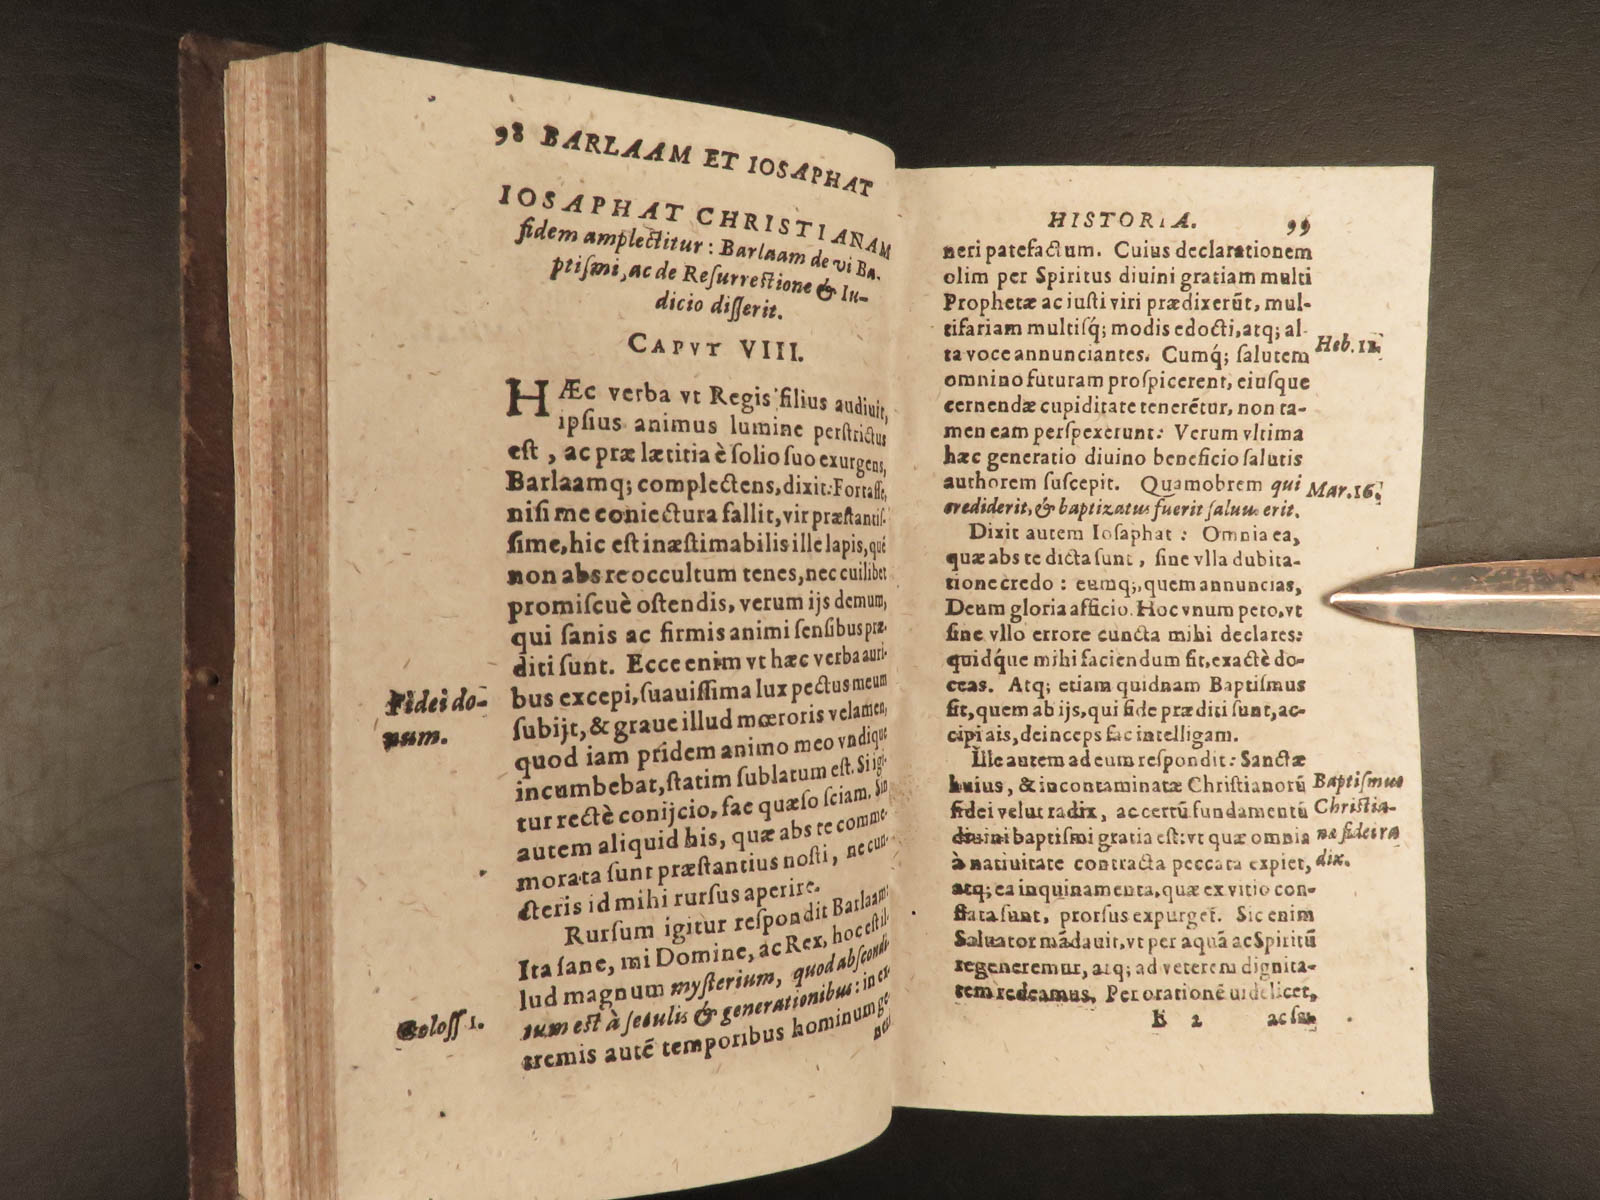 98 BARLAAM ET IOSAPHAT
IOSAPHAT CHRISTIANAM
fidem amplectitur : Barlaam de vi Ba-
ptiſmi, ac de Reſurrectione & Iu-
dicio diſſerit.
CAPVT VIII.
HÆc verba vt Regis filius audiuit,
ipſius animus lumine perſtrictus
eſt , ac præ lætitia è ſolio ſuo exurgens,
Barlaamq; complectens, dixit: Fortaſſe,
niſi me coniectura fallit, vir præſtantiſ-
ſime, hic eſt inæſtimabilis ille lapis, qué
non abs re occultum tenes, nec cuilibet
promiſcuè oſtendis, verum ijs demum,
qui ſanis ac firmis animi ſenſibus præ-
diti ſunt. Ecce enim vt hæc verba auri-
Fidei do-
num.
bus excepi, ſuauiſſima lux pectus meum
ſubijt, & graue illud mœroris velamen,
quod iam pridem animo meo vndique
incumbebat, ſtatim ſublatum eſt. Si igi-
tur rectè conijcio, fac quæſo ſciam. Sin
autem aliquid his, quæ abs te comme-
morata ſunt præſtantius noſti, ne cun-
cteris id mihi rurſus aperire.
Rurſum igitur reſpondit Barlaam:
Ita ſane, mi Domine, ac Rex, hoc eſt il-
lud magnum myſterium, quod abſcondi-
Coloſſ 1.
tum eſt à ſeculis & generationibus: in ex-
tremis autē temporibus hominum ge-
neri
HISTORIA. 99
neri patefactum. Cuius declarationem
olim per Spiritus diuini gratiam multi
Prophetæ ac iuſti viri prædixerūt, mul-
tifariam multiſq́; modis edocti, atq; al-
Heb. 11.
ta voce annunciantes. Cumq́; ſalutem
omnino futuram proſpicerent, eiuſque
cernendæ cupiditate tenerētur, non ta-
men eam perſpexerunt: Verum vltima
hæc generatio diuino beneficio ſalutis
authorem ſuſcepit. Quamobrem qui
Mar. 16.
crediderit, & baptizatus fuerit ſaluus erit.
Dixit autem Ioſaphat : Omnia ea,
quæ abs te dicta ſunt , ſine vlla dubita-
tione credo : eumq;, quem annuncias,
Deum gloria afficio. Hoc vnum peto, vt
ſine vllo errore cuncta mihi declares:
quidq́ue mihi faciendum ſit, exactè do-
ceas. Atq; etiam quidnam Baptiſmus
ſit, quem ab ijs, qui fide præditi ſunt, ac-
cipi ais, deinceps fac intelligam.
Ille autem ad eum reſpondit: Sanctæ
huius , & incontaminatæ Chriſtianorū
Baptiſmus
Chriſtia-
næ fidei ra
dix.
fidei velut radix, ac certū fundamentū
diuini baptiſmi gratia eſt: vt quæ omnia
à natiuitate contracta peccata expiet,
atq; ea inquinamenta, quæ ex vitio con-
flata ſunt, prorſus expurget. Sic enim
Saluator mādauit, vt per aquā ac Spiritū
regeneremur, atq; ad veterem dignita-
tem redeamus. Per orationē uidelicet,
2 ac ſan-